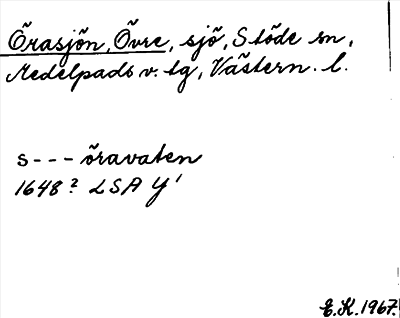 Örasjön, Övre, sjö, Stöde sn,
Medelpads v. tg, Västern. l.
s--- öravaten
1648? LSA Y'
E.K.1967.